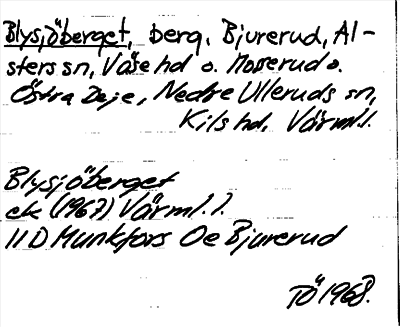 Blysjöberget, berg, Bjurerud, Al-
sters sn, Väse hd o. Mosserud o.
Östra Deje, Nedre Ulleruds sn,
Kils hd, Värml.l.
Blysjöberget
ek (1967) Värml.l.
11 D Munkfors Oe Bjurerud
TÖ 1968.